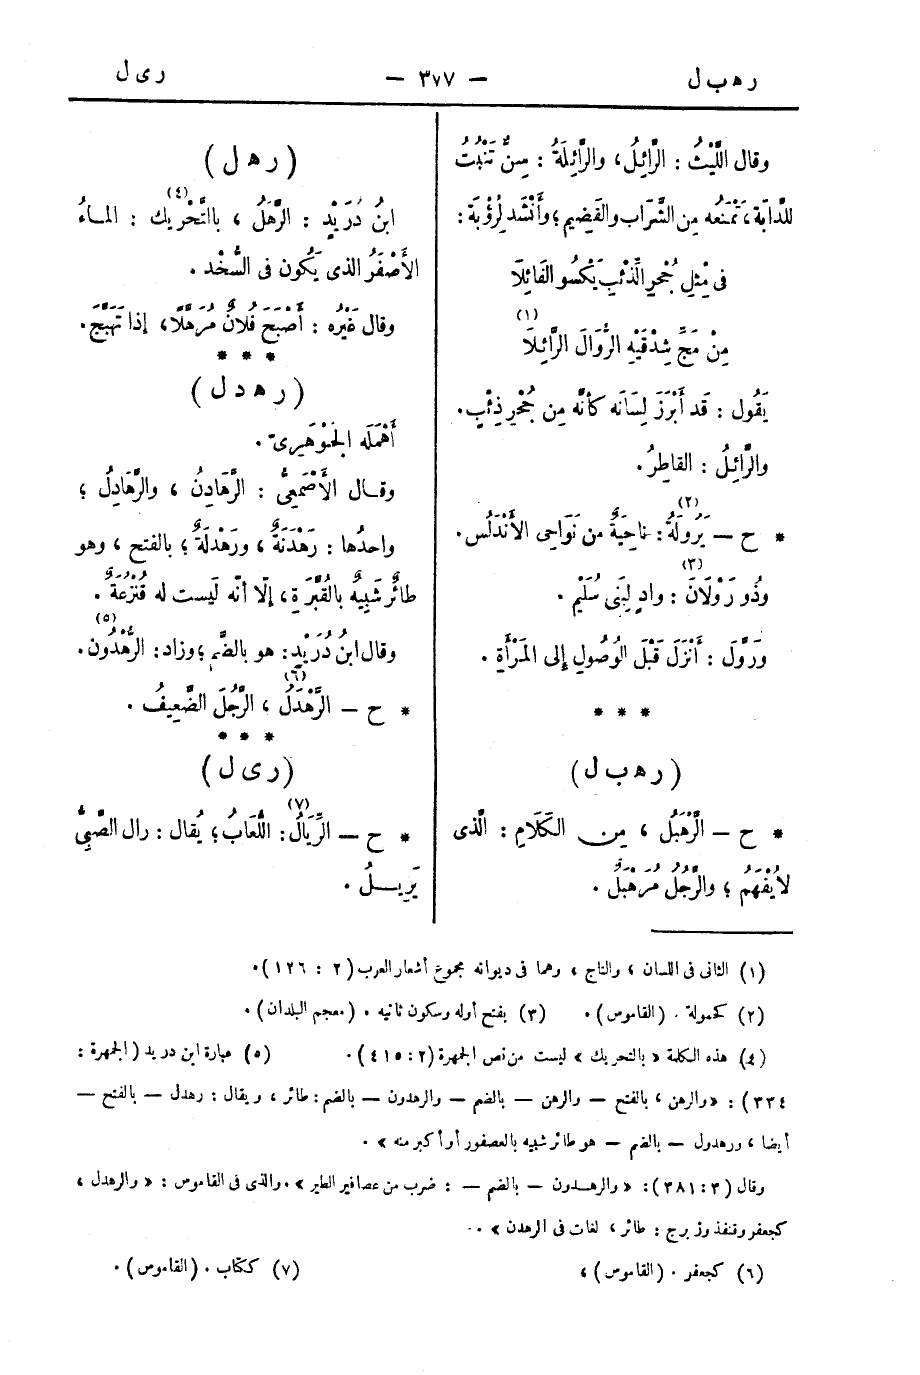 رهبل
— ٣٧٧ —
ريل
وقال اللَّيْثُ : الرَّائِلُ، والرَّائِلَةُ : سِنٌّ تَنْبُتُ
للدَّابّة، تَمْنَعُه مِن الشَّراب والقَضِيم؛ وأَنْشَد لِرُؤْبَة :
فى مِثلِ جُحْرِ الذِّئبِ يَكْسُو الفَائِلَا
مِنْ مَجِّ شِدْقَيْهِ الرُّوَالَ الرَّائِلَا (١)
يَقُول : قَد أَبْرَزَ لِسَانَه كأنَّه مِن جُحْرِ ذِئْبٍ.
والرَّائِلُ : القاطِرُ.
* ح — يَرُولَةُ (٢) : ناحِيَةٌ من نَوَاحِى الأَنْدَلُس.
وذُو رَوْلَانَ (٣) : وادٍ لِبَنِى سُلَيْم.
ورَوَّلَ : أَنْزَلَ قَبْلَ الوُصُولِ إلى المَرْأَةِ.
* * *
(رهبل)
* ح — الرَّهْبَلُ، مِن الكَلَامِ : الَّذى
لا يُفْهَمُ؛ والرَّجُلُ مُرَهْبَلٌ.
(رهل)
ابنُ دُرَيْدٍ : الرَّهَلُ، بالتَّحْرِيك (٤) : المـاءُ
الأَصْفَرُ الذى يَكُون فى السُّخْد.
وقال غَيْرُه : أَصْبَحَ فُلانٌ مُرَهَّلًا، إذا تَهَبَّجَ.
* * *
(رهدل)
أَهْمَلَه الجَوْهَرِىّ.
وقـال الأَصْمَعِىُّ : الرَّهَادِنُ، والرَّهَادِلُ؛
واحدُها : رَهْدَنَةٌ، ورَهْدَلَةٌ؛ بالفتح، وهو
طائرٌ شَبِيهٌ بالقُبَّرَةِ، إلّا أنّه لَيست له قُنْزُعَةٌ.
وقال ابنُ دُرَيْدٍ : هو بالضَّم؛ وزاد : الرُّهْدُون (٥).
* ح — الرَّهْدَلُ (٦)، الرَّجُلُ الضَّعِيفُ.
* * *
(ريل)
* ح — الرِّيَالُ (٧) : اللُّعَابُ؛ يُقال : رال الصَّبِىُّ
يَرِيـلُ.
(١) الثانى فى اللسان، والتاج، وهما فى ديوانه مجموع أشعار العرب (٢ : ١٢٦).
(٢) كحمولة. (القاموس). (٣) بفتح أوله وسكون ثانيه. (معجم البلدان).
(٤) هذه الكلمة « بالتحريك » ليست من نص الجمهرة (٢ : ٤١٥). (٥) عبارة ابن دريد (الجمهرة :
٣٣٤) : «والرهن، بالفتح — والرهن — بالضم — والرهدون — بالضم : طائر، ويقال : رهدل — بالفتح —
أيضا، ورهدول — بالضم — هو طائر شبيه بالعصفور أو أكبر منه ».
وقال (٣ : ٣٨١) : « والرهـدون — بالضم — : ضرب من عصافير الطير ». والذى فى القاموس : « والرهدل،
كجعفر وقنفذ وزبرج : طائر، لغات فى الرهدن ».
(٦) كجعفر. (القاموس)، (٧) ككتاب. (القاموس).